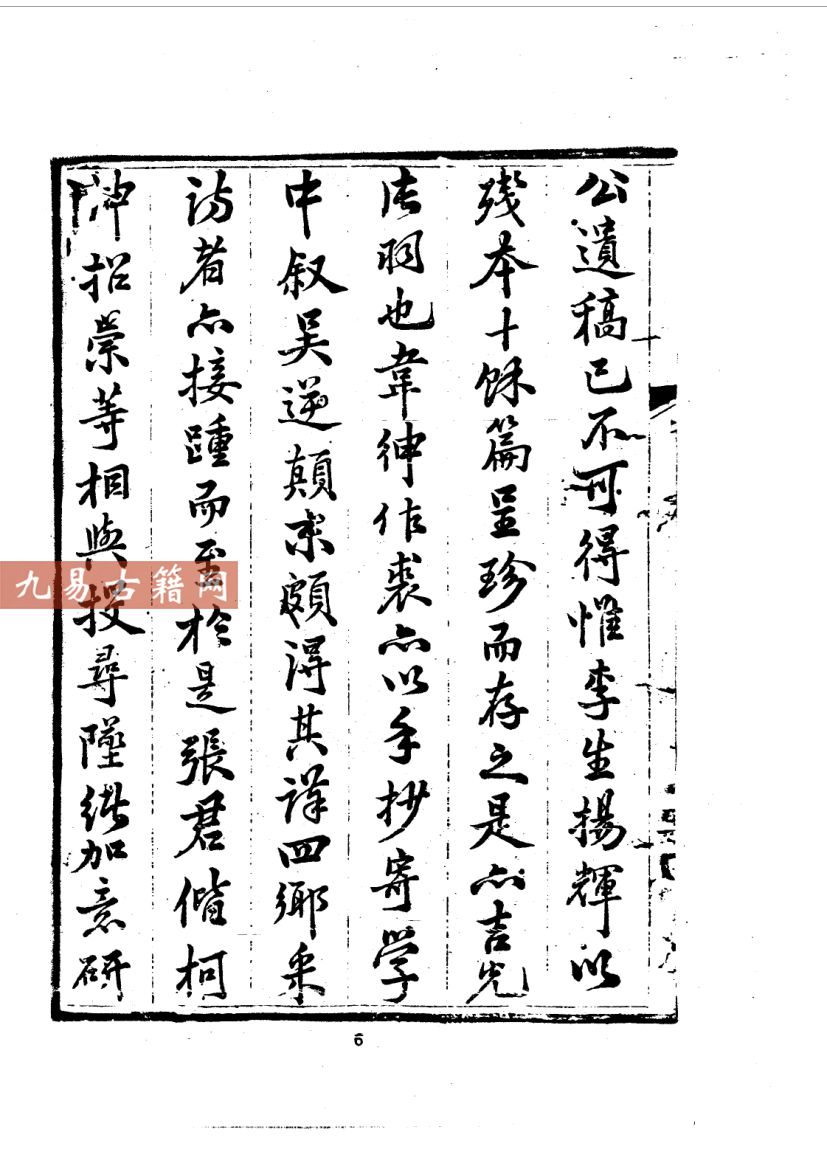 公遺稿已不可得惟李生揚輝以
殘本十餘篇呈珍而存之是亦吉光
片羽也韋紳作裘亦以手抄寄學
中叙吴逆顛末頗得其详四鄉采
訪者亦接踵而至於是張君偕柯
冲招榮等相與搜尋墜緒加意研
九易古籍网
6